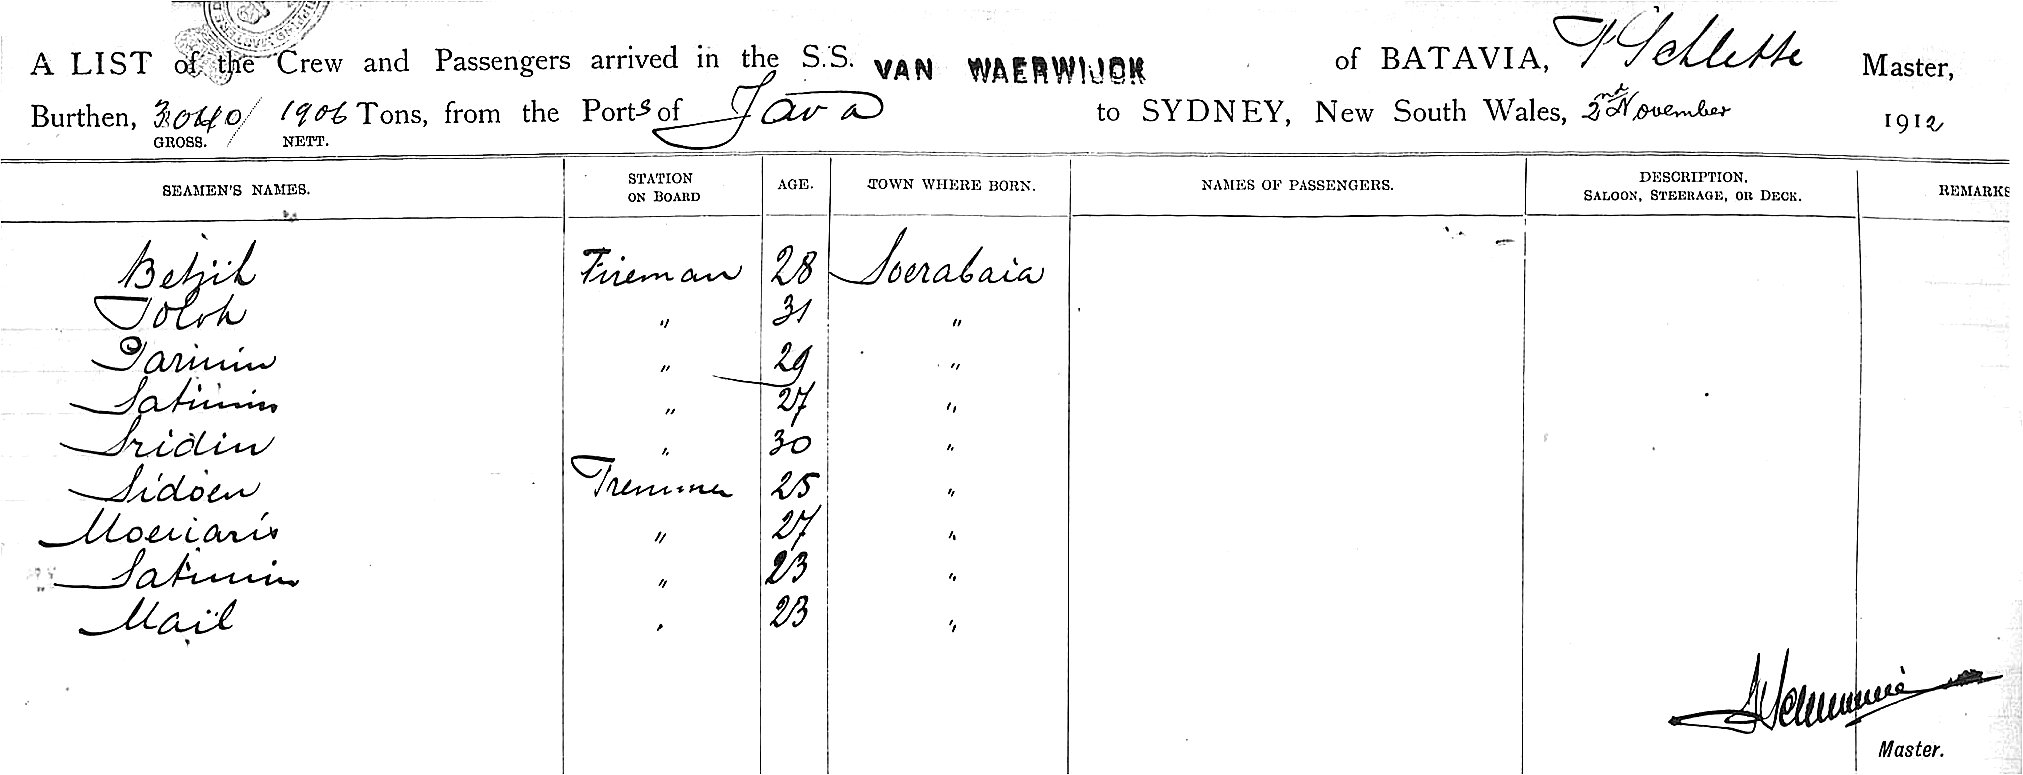 A LIST of the Crew and Passengers arrived in the S.S. VAN WAERWIJCK of BATAVIA, Master,
Burthen, 3040/ 1906 Tons, from the Ports of Java to SYDNEY, New South Wales, 2nd November 1912
GROSS. NETT.
SEAMEN'S NAMES. STATION ON BOARD AGE. TOWN WHERE BORN. NAMES OF PASSENGERS. DESCRIPTION. SALOON, STEERAGE, OR DECK. REMARKS
Betjik Fireman 28 Soerabaia
Toloh " 31 "
Parimin " 29 "
Satimin " 27 "
Sridin " 30 "
Sidoen Tremmer 25 "
" 27 "
Satimin " 23 "
Maïl " 23 "
Master.